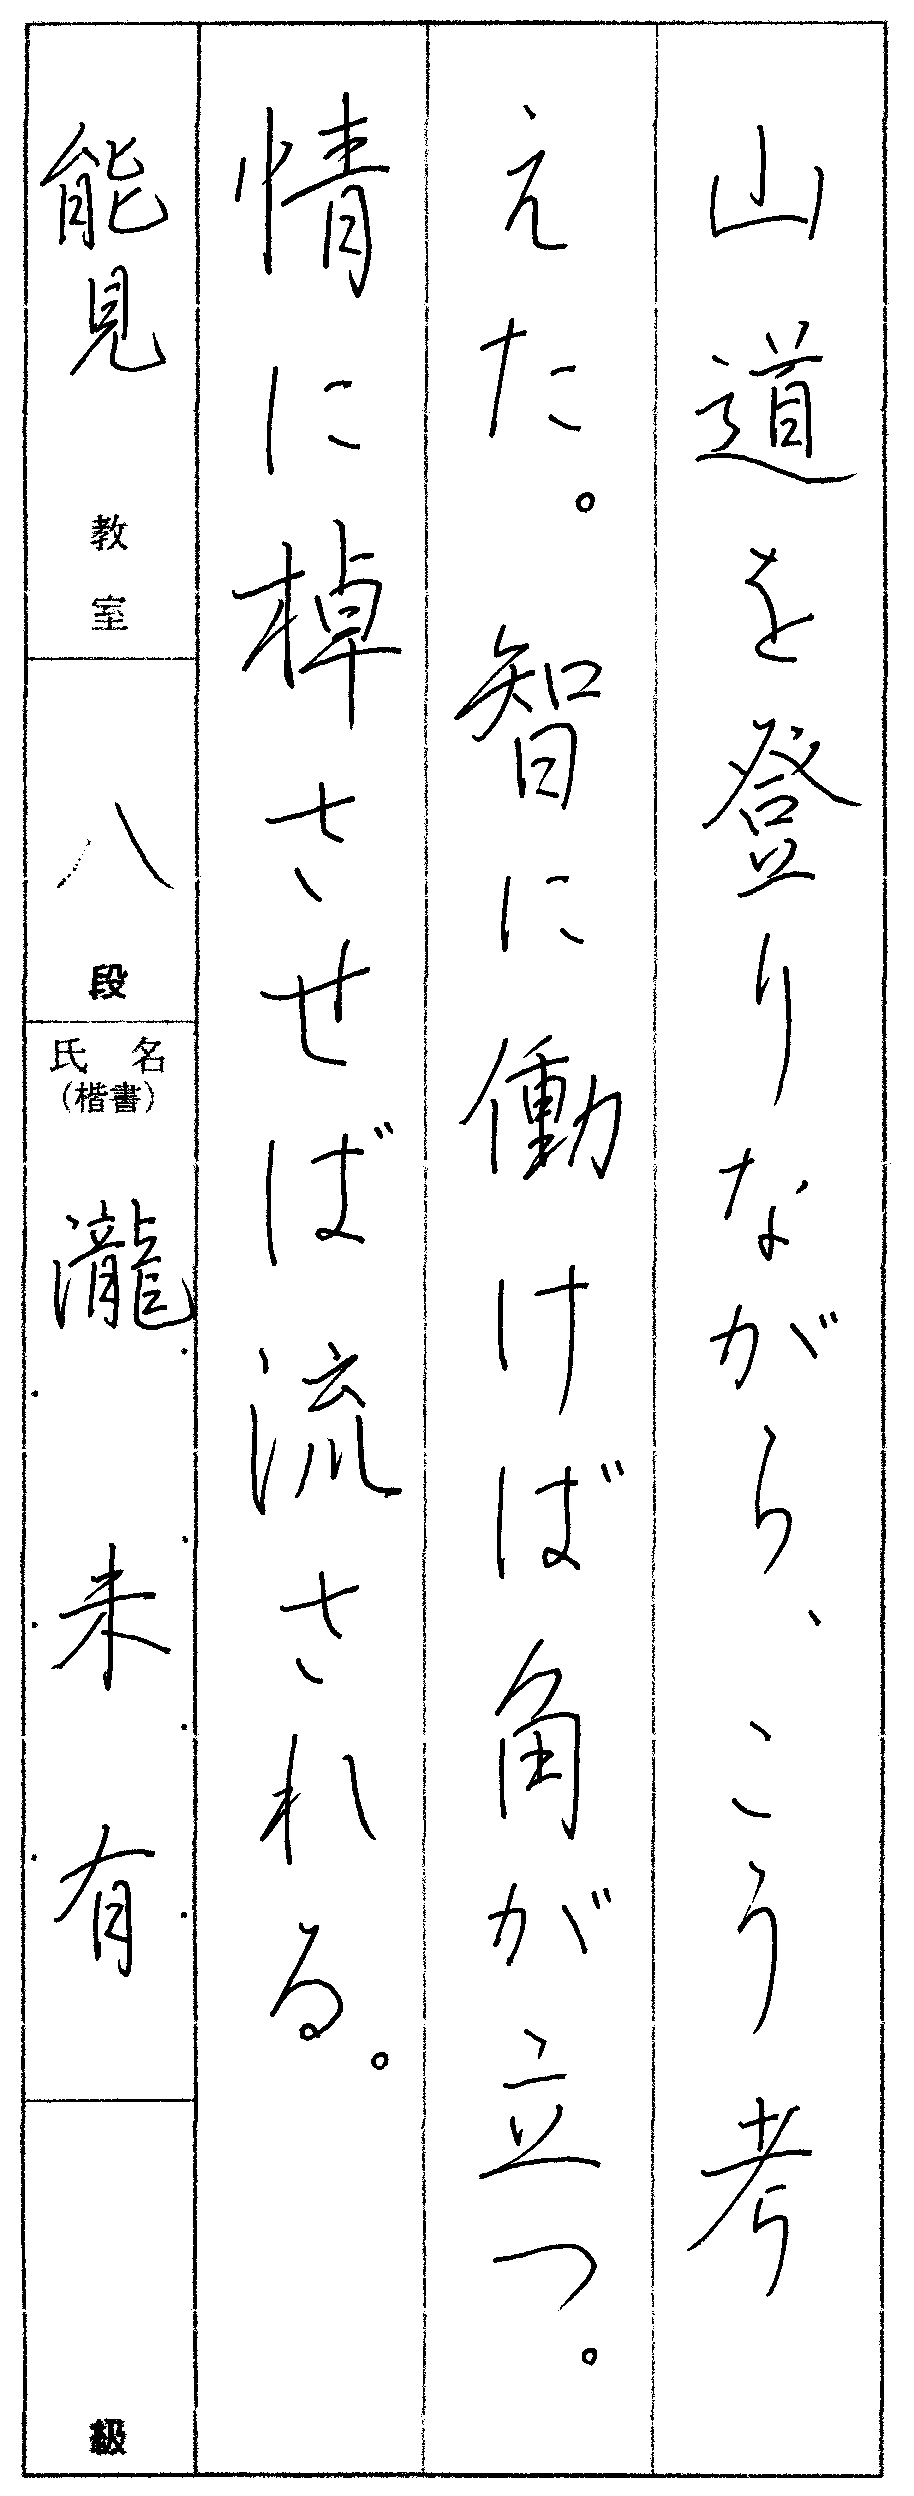 山道を登りながら、こう考
えた。智に働けば角が立つ。
情に棹させば流される。
能見 教室
八 段
氏名
(楷書)
瀧 未有
級